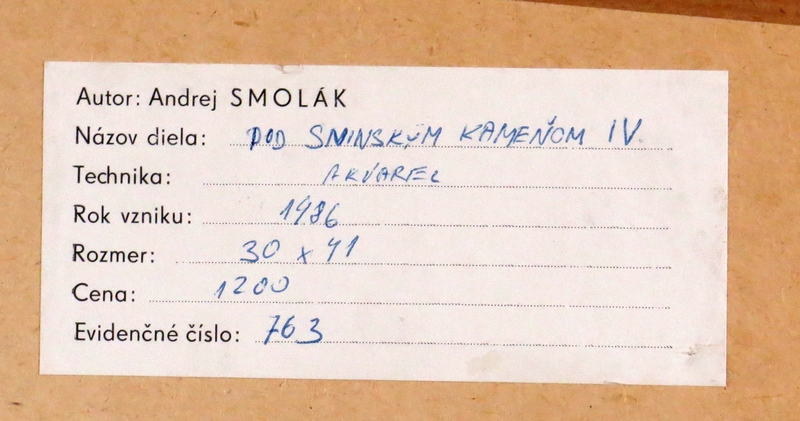 Autor: Andrej SMOLÁK
Názov diela: POD SNINSKÝM KAMEŇOM IV.
Technika: AKVAREL
Rok vzniku: 1986
Rozmer: 30 x 41
Cena: 1200
Evidenčné číslo: 763